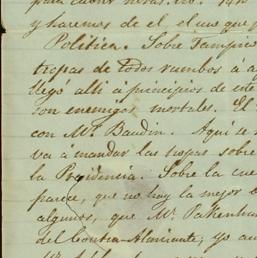 y haremos de el el uso que
Politica. Sobre Tampico
tropas de todos rumbos á a
llego alli a principios de este
son enemigos mortales. El
con Mr. Baudin. Aqui se
va á mandar las tropas sobre
la Presidencia. Sobre la cue
parece, que no hay la mejor
algunos, que Mr. Pakenham
del Contra-Almirante; yo au